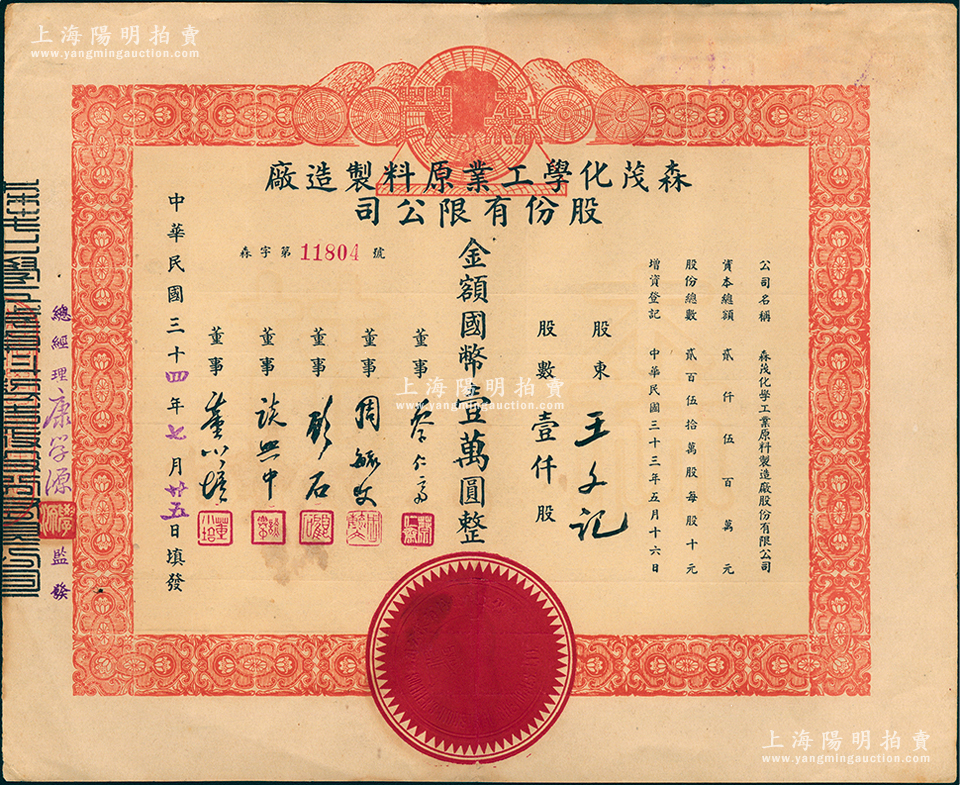 上海陽明拍賣
www.yangmingauction.com
森茂
森茂化學工業原料製造廠
股份有限公司
公司名稱 森茂化學工業原料製造廠股份有限公司
資本總額 貳仟伍百萬元
股份總數 貳百伍拾萬股每股十元
增資登記 中華民國三十三年五月十六日
股東 王文記
股數 壹仟股
金額國幣壹萬圓整
森字第 11804 號
董事
董事 周毓文
董事 顧石
董事 談熙中
董事 董小培
中華民國三十四年七月廿五日填發
總經理 康學源 監發
上海陽明拍賣
www.yangmingauction.com
上海陽明拍賣
www.yangmingauction.com